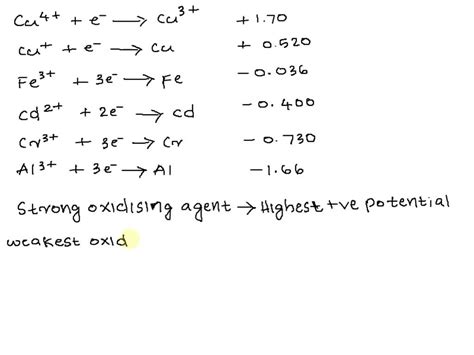 Cu⁴⁺ + e⁻ → Cu³⁺ +1.70
Cu⁺ + e⁻ → Cu +0.520
Fe³⁺ + 3e⁻ → Fe -0.036
Cd²⁺ + 2e⁻ → Cd -0.400
Cr³⁺ + 3e⁻ → Cr -0.730
Al³⁺ + 3e⁻ → Al -1.66
Strong oxidising agent → Highest +ve potential
weakest oxid